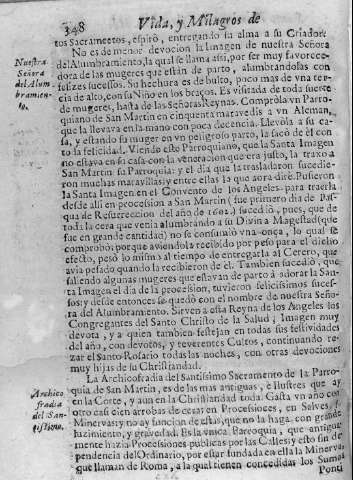 348 Vida, y Milagros de
tos Sacramentos, espiró, entregando su alma a su Criador.
No es de menor devocion la Imagen de nuestra Señora
del Alumbramiento, la qual se llama assi, por ser muy favorece-
dora de las mugeres que están de parto, alumbrandolas con
felizes sucessos. Su hechura es de bulto, poco mas de vna ter-
cia de alto, con su Niño en los braços. Es visitada de toda suerte
de mugeres, hasta de las Señoras Reynas. Compróla vn Parro-
quiano de San Martin en cinquenta maravedis a vn Aleman,
que la llevava en la mano con poca decencia. Llevóla a su ca-
sa, y estando su muger en vn peligroso parto, la sacó de él con
toda felicidad. Viendo este Parroquiano, que la Santa Imagen
no estava en su casa con la veneracion que era justo, la traxo a
San Martin su Parroquia; y el dia que la trasladaron sucedie-
ron muchas maravillas; entre ellas la que aora diré. Pusieron
la Santa Imagen en el Convento de los Angeles, para traerla
desde alli en procession a San Martin (fue primero dia de Pas-
qua de Resurreccion del año de 1602.) sucedió, pues, que de
toda la cera que venia alumbrando a su Divina Magestad (que
fue en grande cantidad) no se consumió vna onça, lo qual se
comprobó; porque aviendola recibido por peso para el dicho
efecto, pesó lo mismo al tiempo de entregarla al Cerero, que
avia pesado quando la recibieron de el. Tambien sucedió, que
saliendo algunas mugeres que estavan de parto á adorar la San-
ta Imagen el dia de la procession, tuvieron felicissimos suces-
sos: y desde entonces se quedó con el nombre de nuestra Seño-
ra del Alumbramiento. Sirven a esta Reyna de los Angeles los
Congregantes del Santo Christo de la Salud; Imagen muy
devota, y a quien tambien festejan en todas sus festividades
del año, con devotos, y reverentes Cultos, continuando re-
zar el Santo Rosario todas las noches, con otras devociones
muy hijas de su Christiandad.
La Archicofradia del Santissimo Sacramento de la Parro-
quia de San Martin, es de las mas antiguas, è ilustres que ay
en la Corte, y aun en la Christiandad toda. Gasta vn año con
otro casi cien arrobas de cera en Processiones, en Salves, y
Minervas: y no ay funcion de estas, que no la haga con grande
luzimiento, y gravedad. Es la vnica Parroquia, que antigua-
mente hazia Processiones publicas por las Calles; y esto sin de-
pendencia del Ordinario, por estar fundada en ella la Minerva
que llaman de Roma, a la qual tienen concedidas los Sumos
Ponti
Nuestra
Señora
del Alum-
bramien-
to.
Archico
fradia
del San-
tissimo.